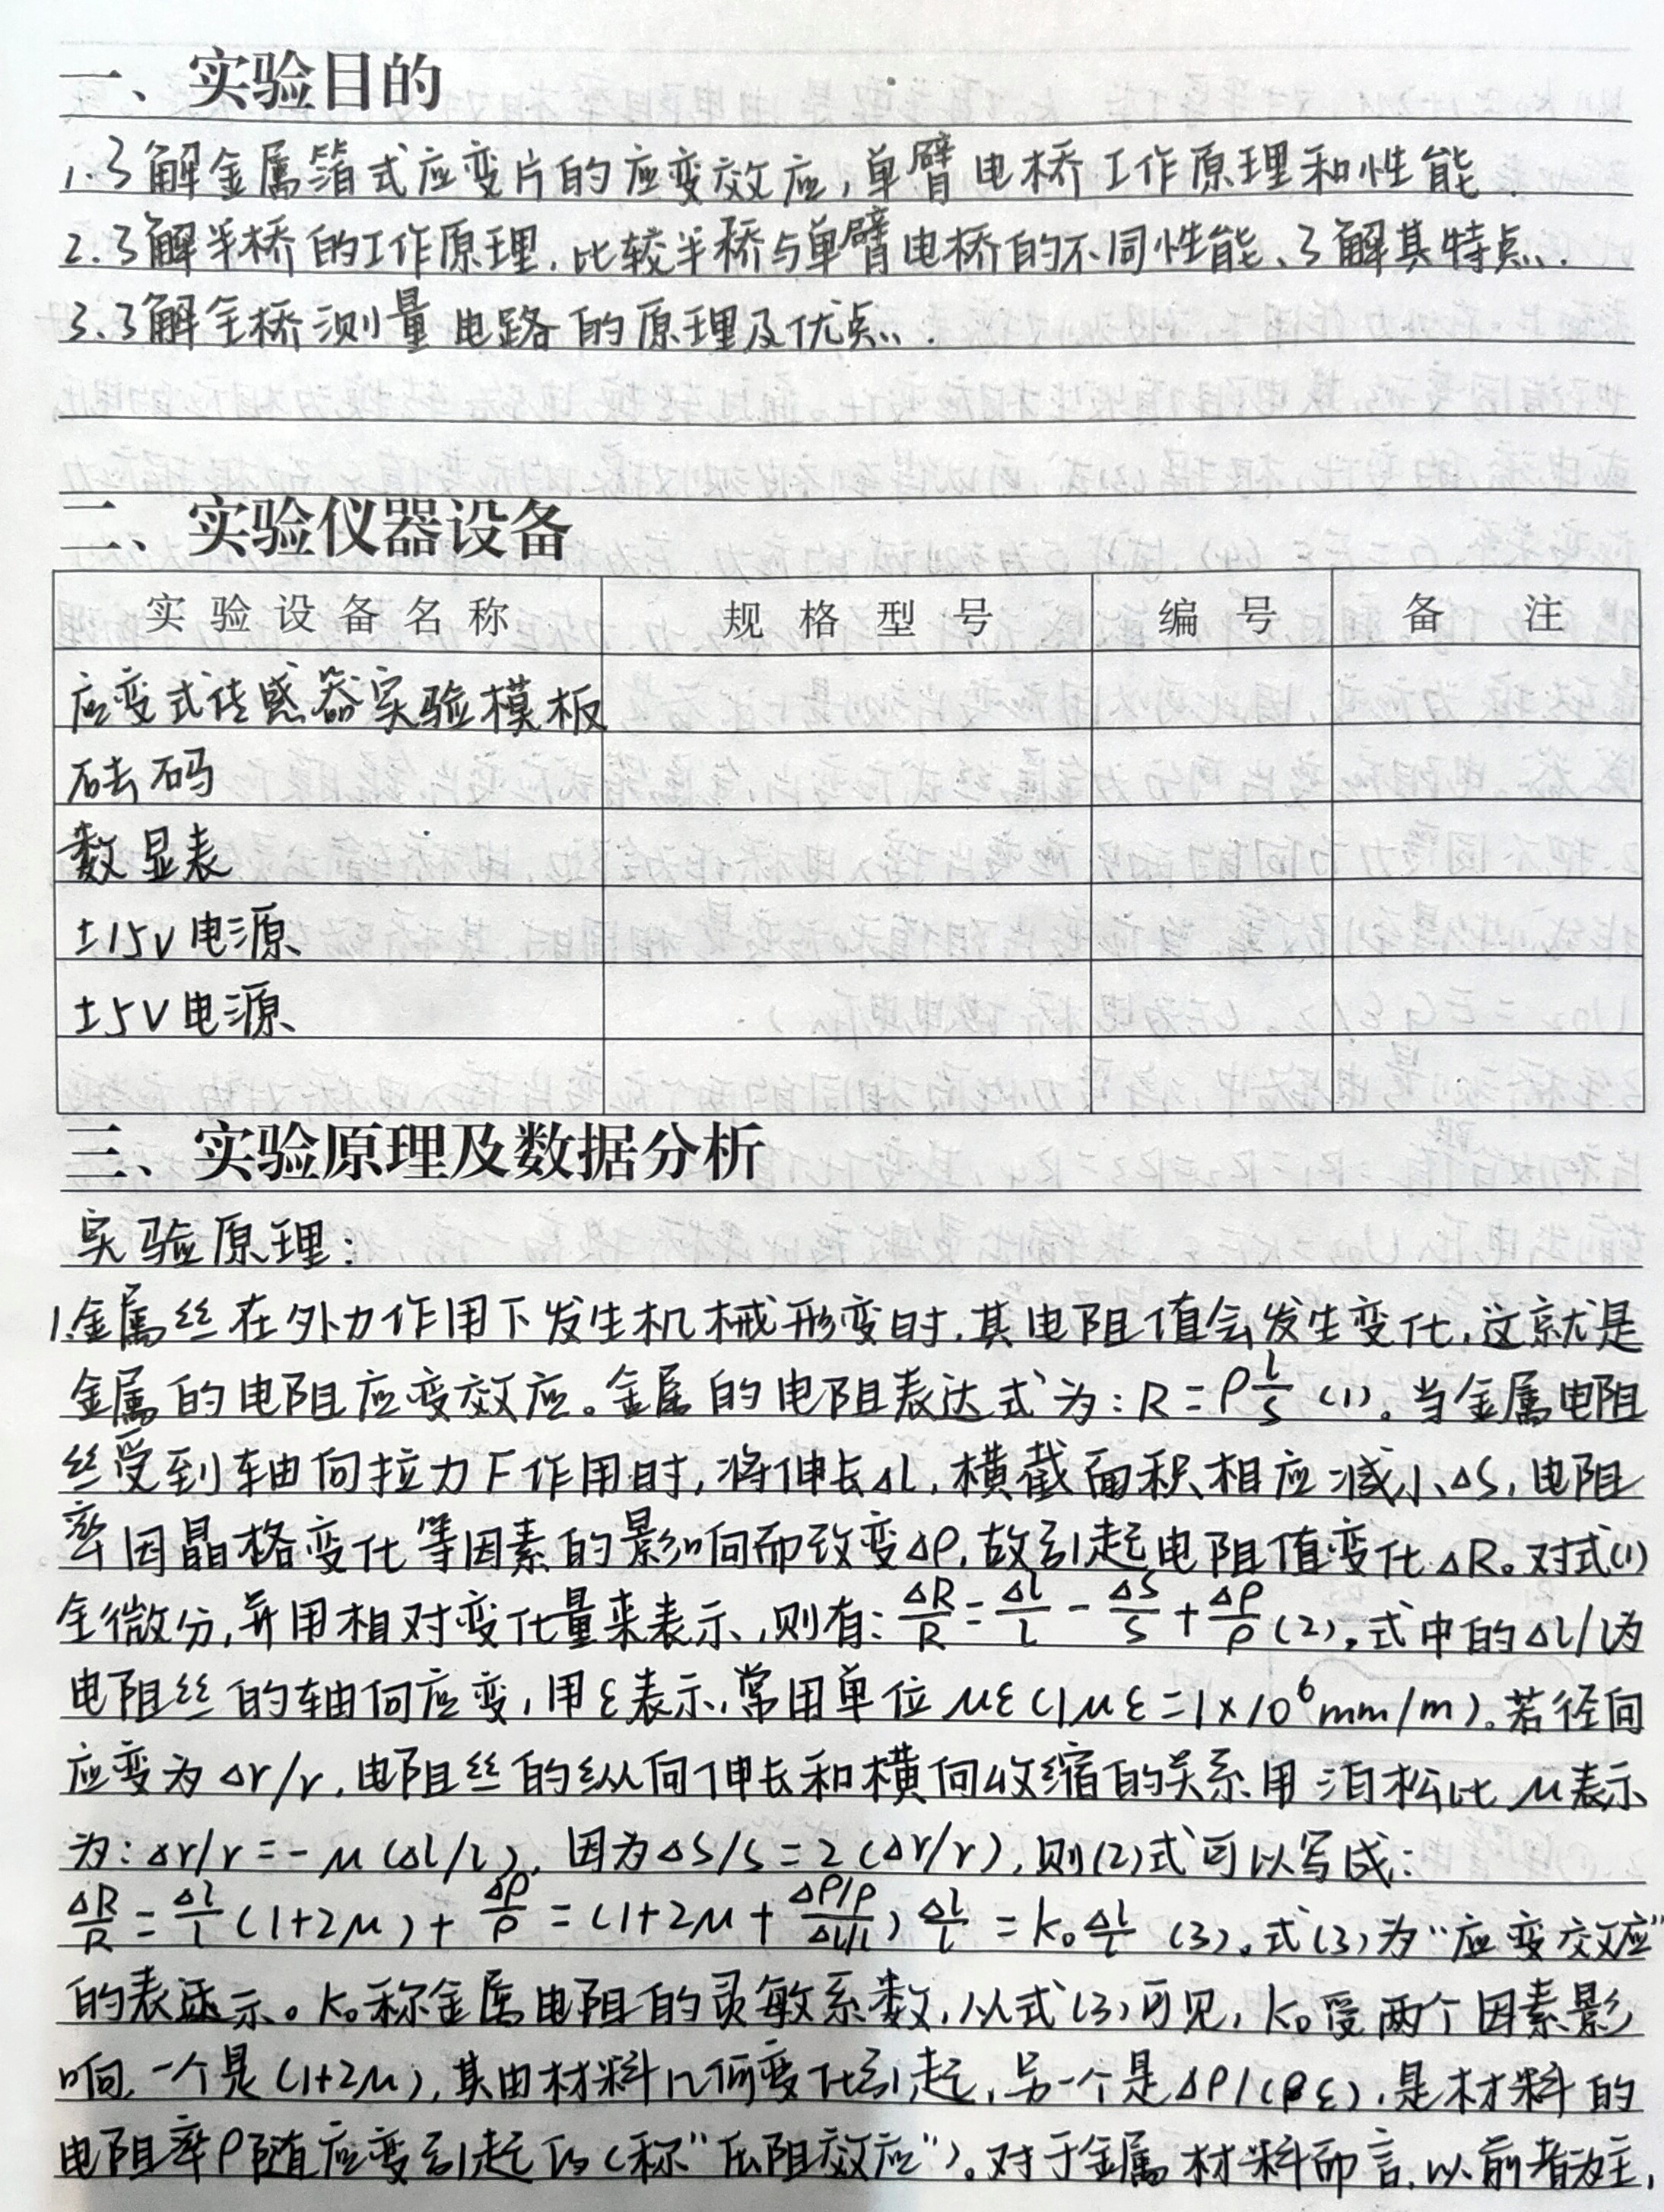 一、实验目的
1.了解金属箔式应变片的应变效应,单臂电桥工作原理和性能.
2.了解半桥的工作原理,比较半桥与单臂电桥的不同性能、了解其特点.
3.了解全桥测量电路的原理及优点.
二、实验仪器设备
实验设备名称 规格型号 编号 备注
应变式传感器实验模板
砝码
数显表
±15V电源
±5V电源
三、实验原理及数据分析
实验原理:
1.金属丝在外力作用下发生机械形变时,其电阻值会发生变化,这就是
金属的电阻应变效应。金属的电阻表达式为:R=ρl/S (1)。当金属电阻
丝受到轴向拉力F作用时,将伸长Δl,横截面积相应减小ΔS,电阻
率因晶格变化等因素的影响而改变Δρ,故引起电阻值变化ΔR。对式(1)
全微分,并用相对变化量来表示,则有:ΔR/R=Δl/l-ΔS/S+Δρ/ρ(2)。式中的Δl/l为
电阻丝的轴向应变,用ε表示,常用单位με(1με=1×10⁶mm/m)。若径向
应变为Δr/r,电阻丝的纵向伸长和横向收缩的关系用泊松比μ表示
为:Δr/r=-μ(Δl/l),因为ΔS/S=2(Δr/r),则(2)式可以写成:
ΔR/R=Δl/l(1+2μ)+Δρ/ρ=(1+2μ+(Δρ/ρ)/(Δl/l))Δl/l=k₀Δl/l (3)。式(3)为"应变效应"
的表达示。k₀称金属电阻的灵敏系数,从式(3)可见,k₀受两个因素影
响,一个是(1+2μ),其由材料几何变化引起,另一个是Δρ/(ρε),是材料的
电阻率ρ随应变引起的(称"压阻效应")。对于金属材料而言,以前者为主,